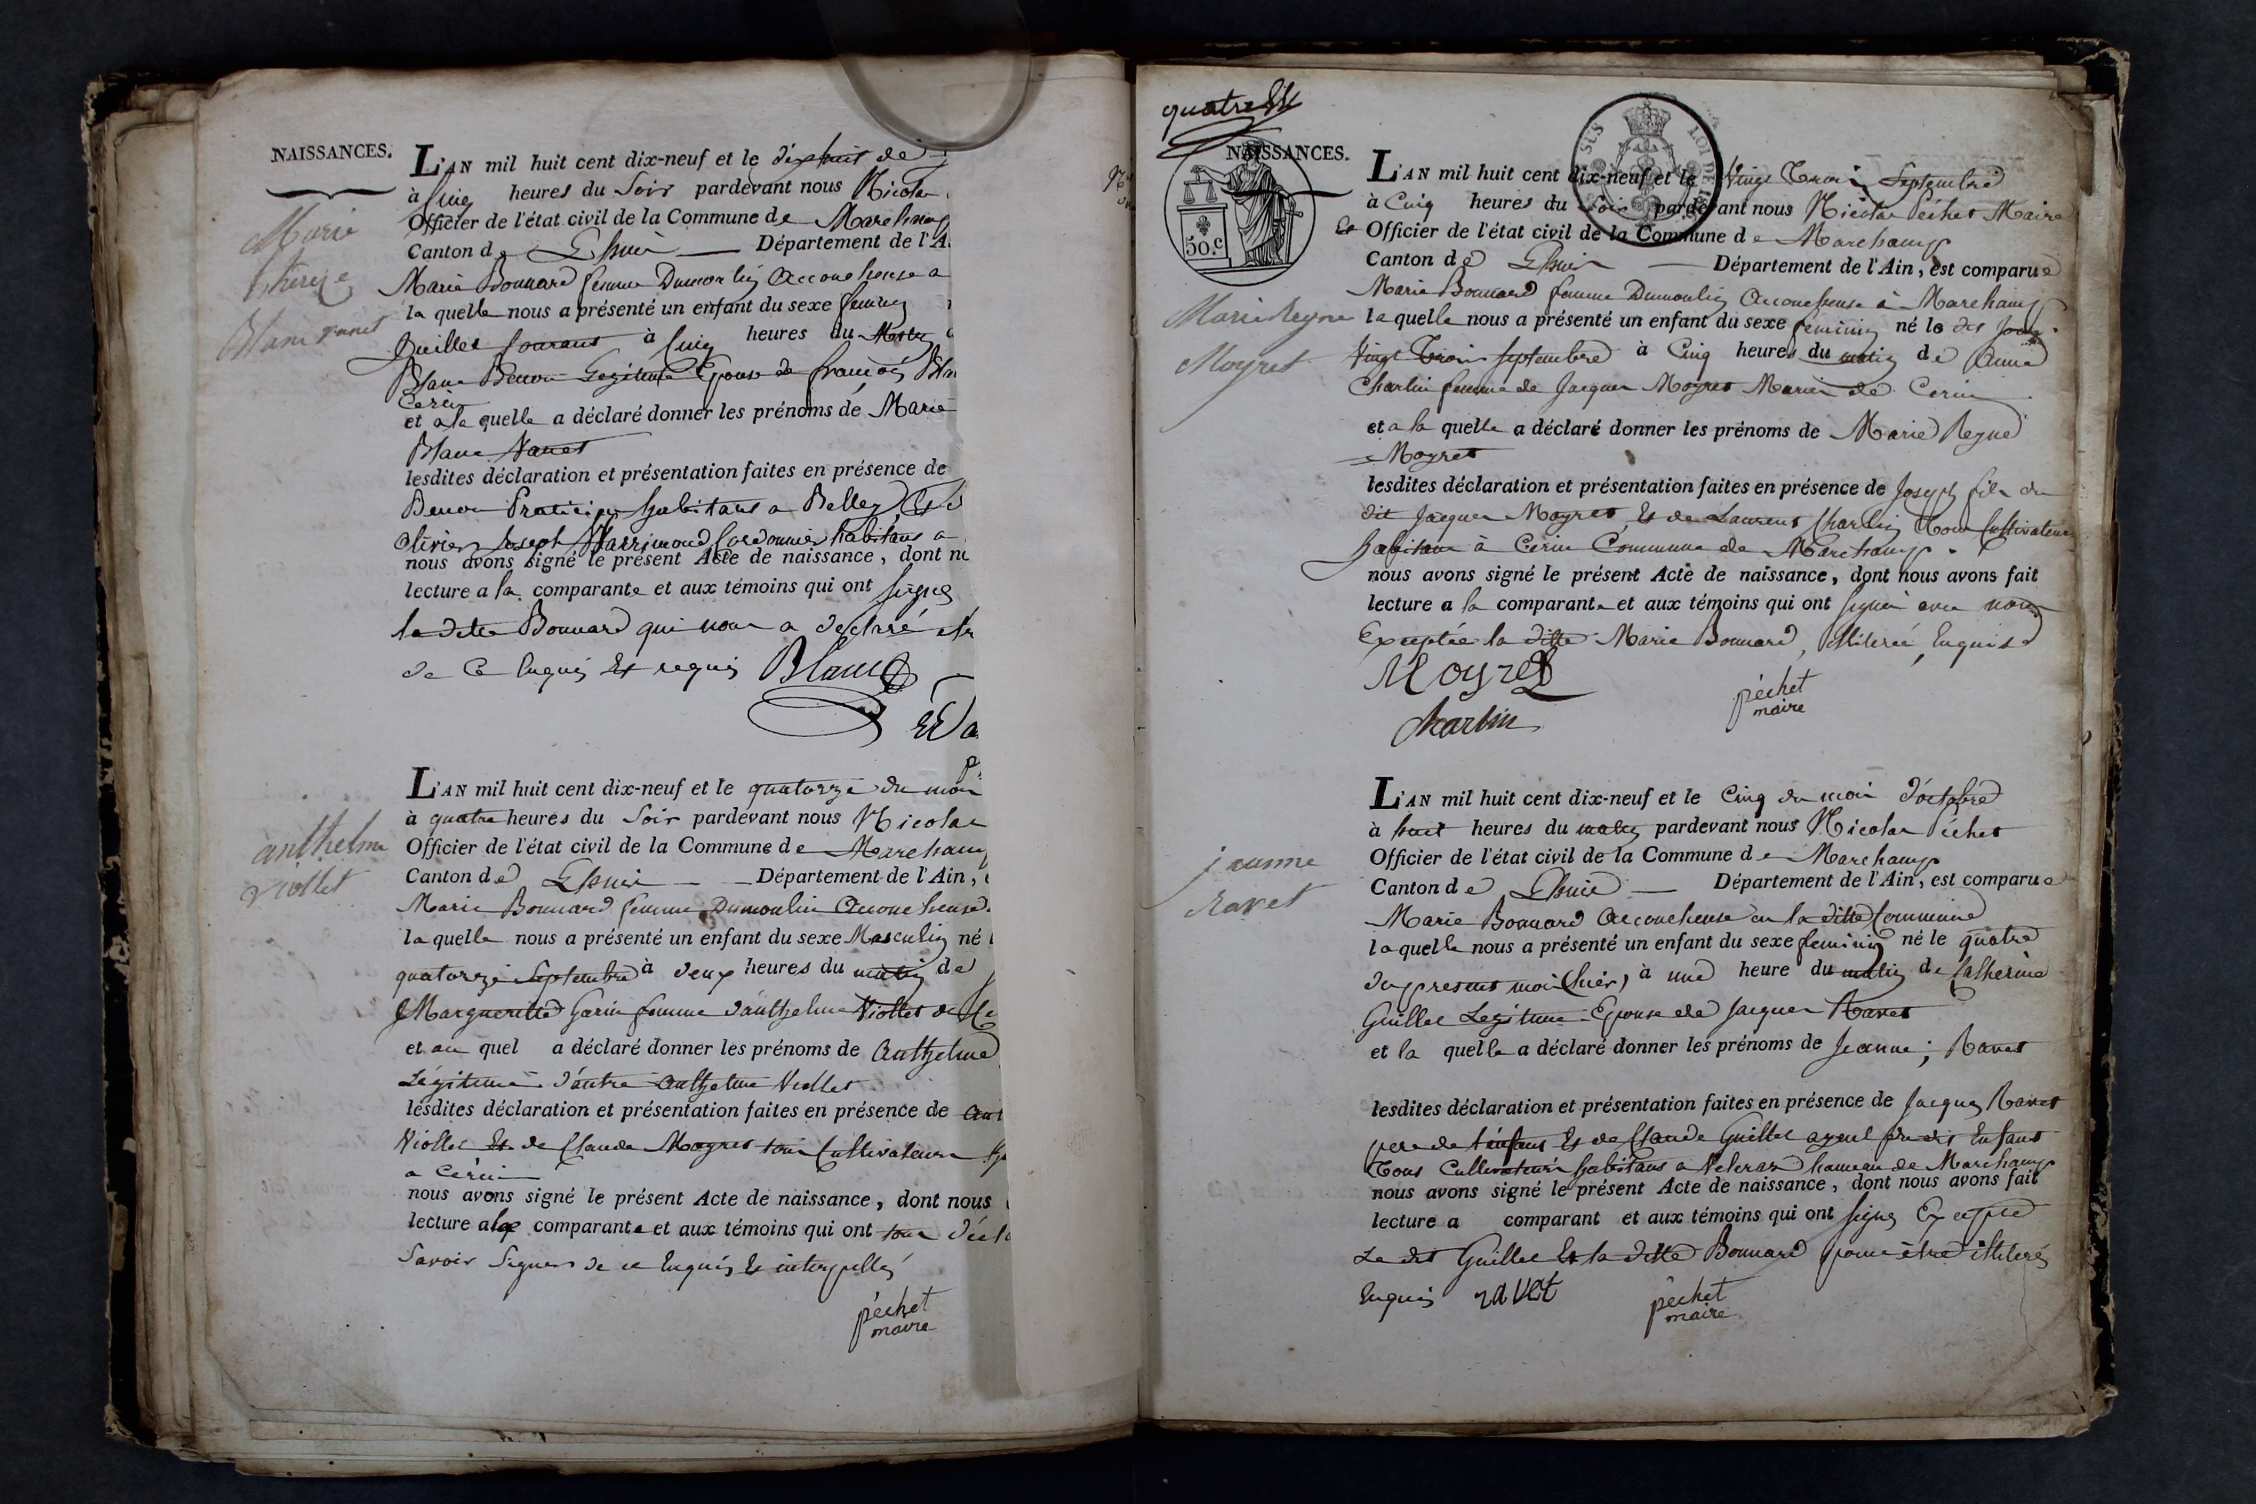 NAISSANCES.
Marie
thereze
Blanc vanet
L'AN mil huit cent dix-neuf et le dixhuit de
à Cinq heures du Soir pardevant nous Nicolas
Officier de l'état civil de la Commune de Marchamp
Canton de Lhuis Département de l'A
Marie Bonnard femme Dumoulin accoucheuse a
la quelle nous a présenté un enfant du sexe feminin
Juillet Courant à Cinq heures du Matin
Blanc Benon Legitime Epouse de françois Bla
Cerin
et a la quelle a déclaré donner les prénoms de Marie
Blanc Vanet
lesdites déclaration et présentation faites en présence de
Benon Praticien habitant a Belley, Et d
olivier Joseph Marrimond Cordonnier habitant a
nous avons signé le présent Acte de naissance, dont no
lecture a la comparante et aux témoins qui ont signés
la ditte Bonnard qui nous a declaré
de Ce Enquis Et requis Blanc
anthelme
viollet
L'AN mil huit cent dix-neuf et le quatorze du mois
à quatre heures du Soir pardevant nous Nicolas
Officier de l'état civil de la Commune de Marchamp
Canton de Lhuis Département de l'Ain,
Marie Bonnard femme Dumoulin accoucheuse
la quelle nous a présenté un enfant du sexe Masculin né
quatorze Septembre à deux heures du matin de
Marguerite Garin femme d'anthelme Viollet de
et au quel a déclaré donner les prénoms de Anthelme
Légitime d'autre anthelme Viollet
lesdites déclaration et présentation faites en présence de ant
Viollet Et de Claude Moyret tous Cultivateurs
a Cérin
nous avons signé le présent Acte de naissance, dont nous
lecture a la comparante et aux témoins qui ont tous décla
Savoir Signer de ce Enquis Et interpellés
péchet
maire
quatre
50.c
NAISSANCES.
SUS LOI DE
Marie Reyne
Moyret
L'AN mil huit cent dix-neuf et le Vingt Trois Septembre
à Cinq heures du Soir pardevant nous Nicolas Péchet Maire
Officier de l'état civil de la Commune de Marchamp
Canton de Lhuis Département de l'Ain, est comparue
Marie Bonnard femme Dumoulin Accoucheuse à Marchamp
laquelle nous a présenté un enfant du sexe féminin né le dit jour
Vingt Trois Septembre à Cinq heures du matin de Anne
Charlin femme de Jacques Moyret Mariés de Cerin
et a la quelle a déclaré donner les prénoms de Marie Reyne
Moyret
lesdites déclaration et présentation faites en présence de Joseph fils du
dit Jacques Moyret, Et de Laurent Charlin Tous Cultivateurs
habitans à Cerin Commune de Marchamp.
nous avons signé le présent Acte de naissance, dont nous avons fait
lecture a la comparante et aux témoins qui ont signés avec nous
Exceptée la ditte Marie Bonnard, illiterée, Enquise
Moyret
péchet
maire
charlin
jeanne
ravet
L'AN mil huit cent dix-neuf et le Cinq du mois d'octobre
à huit heures du matin pardevant nous Nicolas Péchet
Officier de l'état civil de la Commune de Marchamp
Canton de Lhuis Département de l'Ain, est comparue
Marie Bonnard accoucheuse en la ditte Commune
laquelle nous a présenté un enfant du sexe feminin né le quatre
du present mois (hier) à une heure du matin de Catherine
Guillet Legitime Epouse de Jacques Ravet
et la quelle a déclaré donner les prénoms de Jeanne; Ravet
lesdites déclaration et présentation faites en présence de Jacques Ravet
pere de l'enfant Et de Claude Guillet ayeul du dit Enfant
Tous Cultivateurs habitans a hameau de Marchamp
nous avons signé le présent Acte de naissance, dont nous avons fait
lecture a comparant et aux témoins qui ont signés Excepté
Le dit Guillet Et la ditte Bonnard pour être illiterés
Enquis ravet péchet
maire